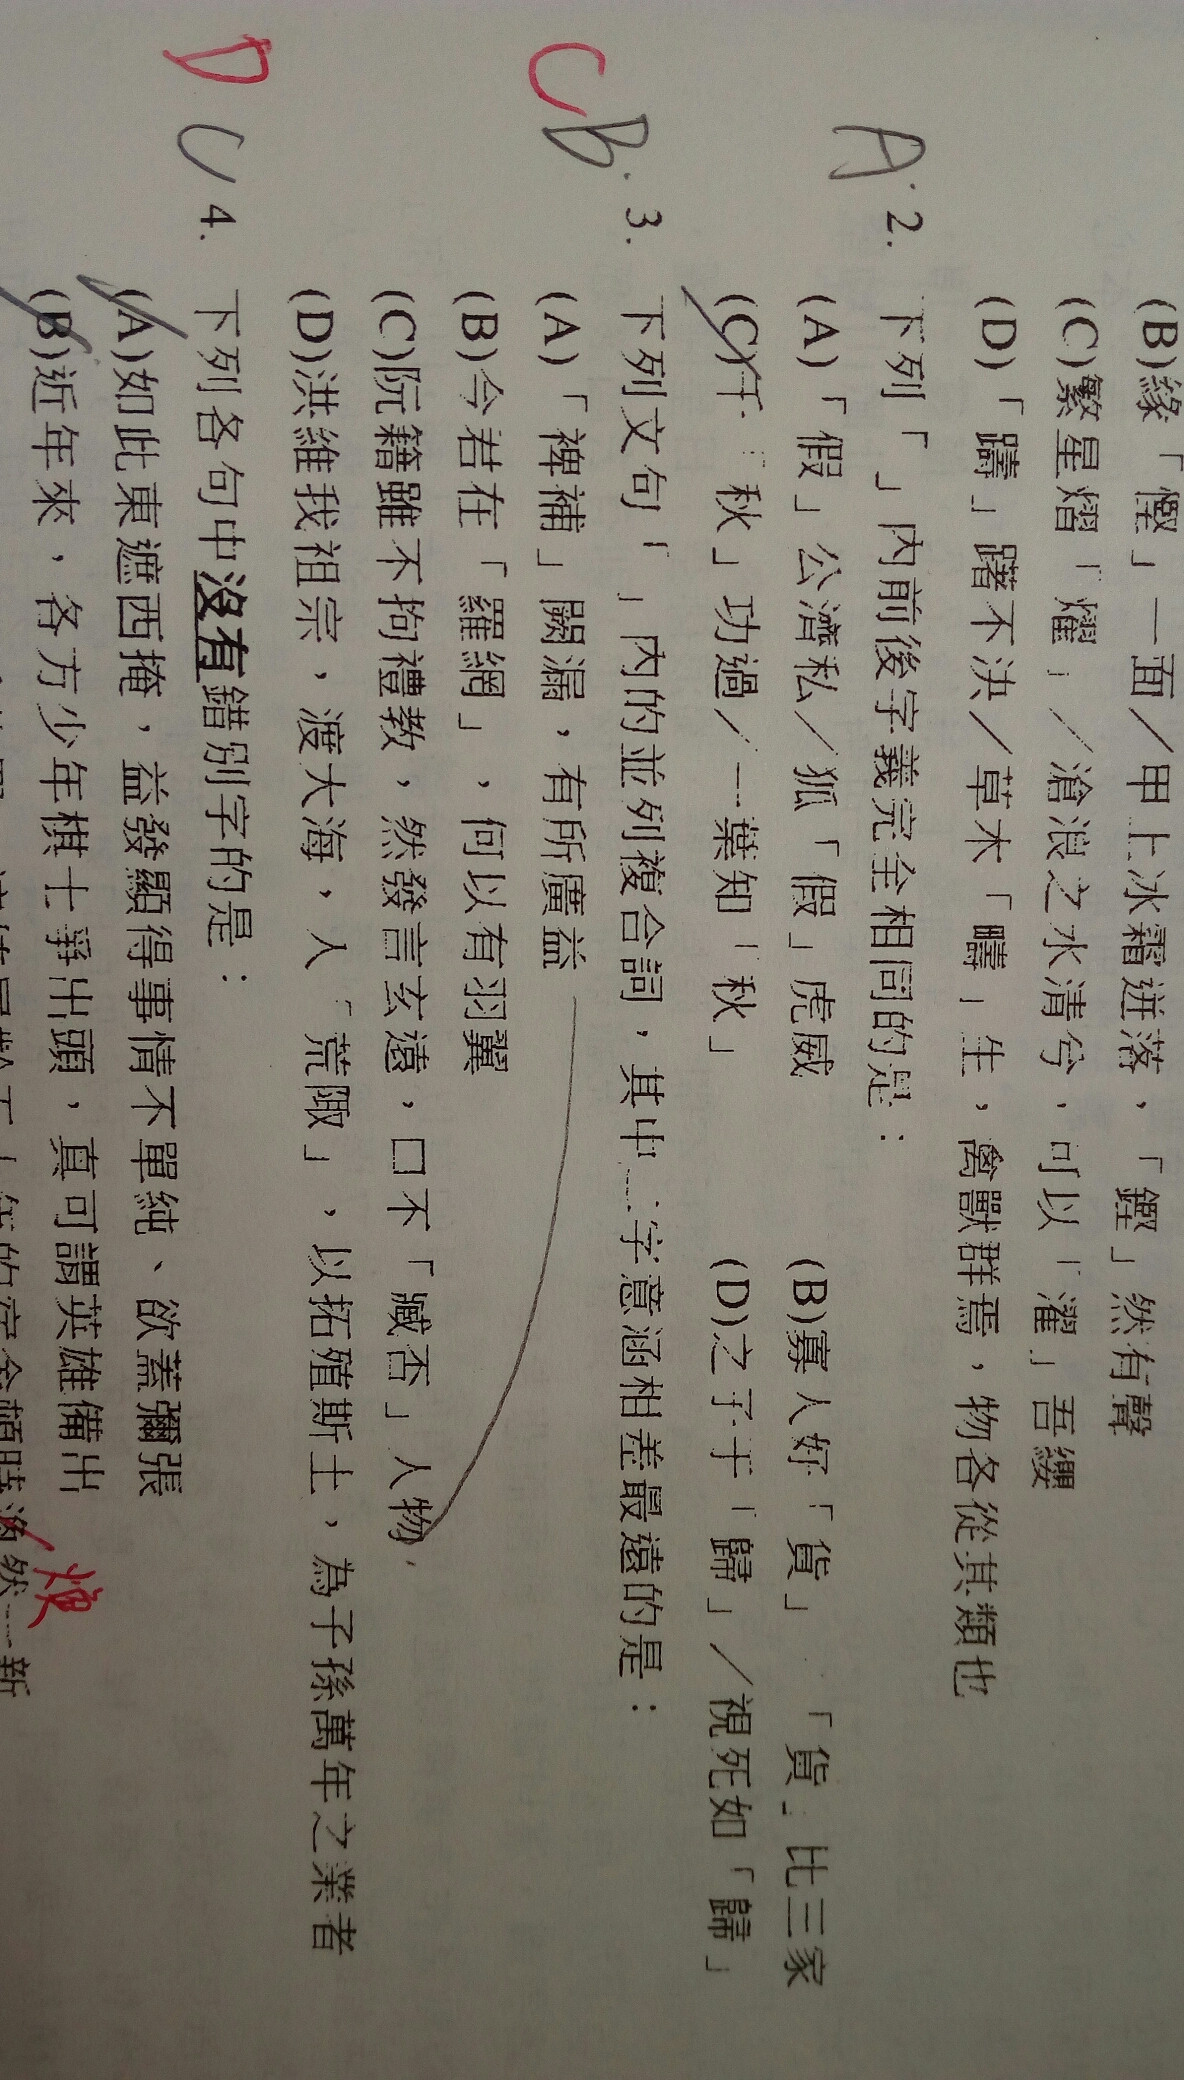 (B)緣「慳」一面／甲上冰霜迸落，「鏗」然有聲
(C)繁星熠「燿」／滄浪之水清兮，可以「濯」吾纓
(D)「躊」躇不決／草木「疇」生，禽獸群焉，物各從其類也
A 2. 下列「」內前後字義完全相同的是：
(A)「假」公濟私／狐「假」虎威 (B)寡人好「貨」／「貨」比三家
(C)千「秋」功過／一葉知「秋」 (D)之子于「歸」／視死如「歸」
C B. 3. 下列文句「」內的並列複合詞，其中二字意涵相差最遠的是：
(A)「裨補」闕漏，有所廣益
(B)今君在「羅網」，何以有羽翼
(C)阮籍雖不拘禮教，然發言玄遠，口不「臧否」人物
(D)洪維我祖宗，渡大海，入「荒陬」，以拓殖斯土，為子孫萬年之業者
D C 4. 下列各句中沒有錯別字的是：
(A)如此東遮西掩，益發顯得事情不單純、欲蓋彌張
(B)近年來，各方少年棋士爭出頭，真可謂英雄備出
煥
然一新